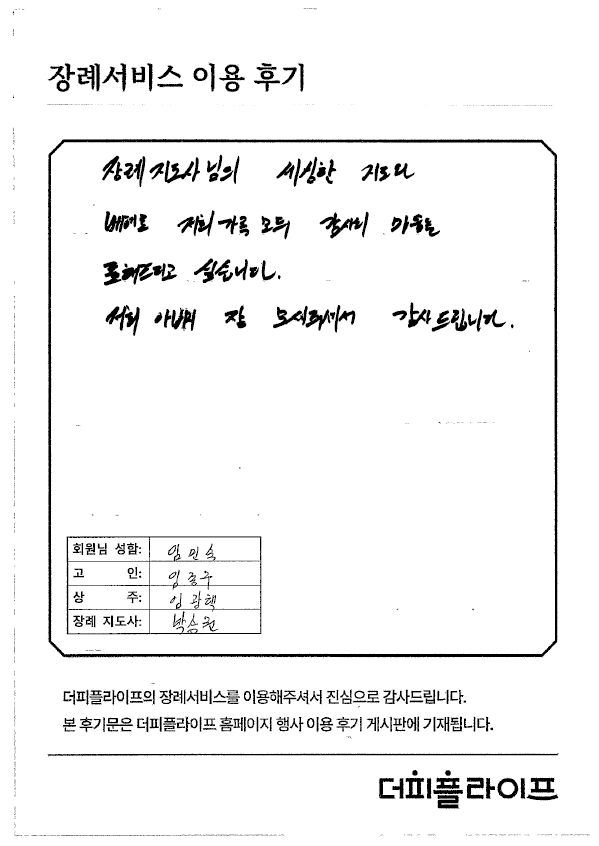 장례서비스 이용 후기
장례지도사님의 세심한 지도와
배려로 저희 가족 모두 감사의 마음을
표해드리고 싶습니다.
저희 아버지 잘 모셔줘서 감사드립니다.
회원님 성함: 임민숙
고 인: 임종구
상 주: 임광택
장례 지도사: 박승권
더피플라이프의 장례서비스를 이용해주셔서 진심으로 감사드립니다.
본 후기문은 더피플라이프 홈페이지 행사 이용 후기 게시판에 기재됩니다.
더피플라이프